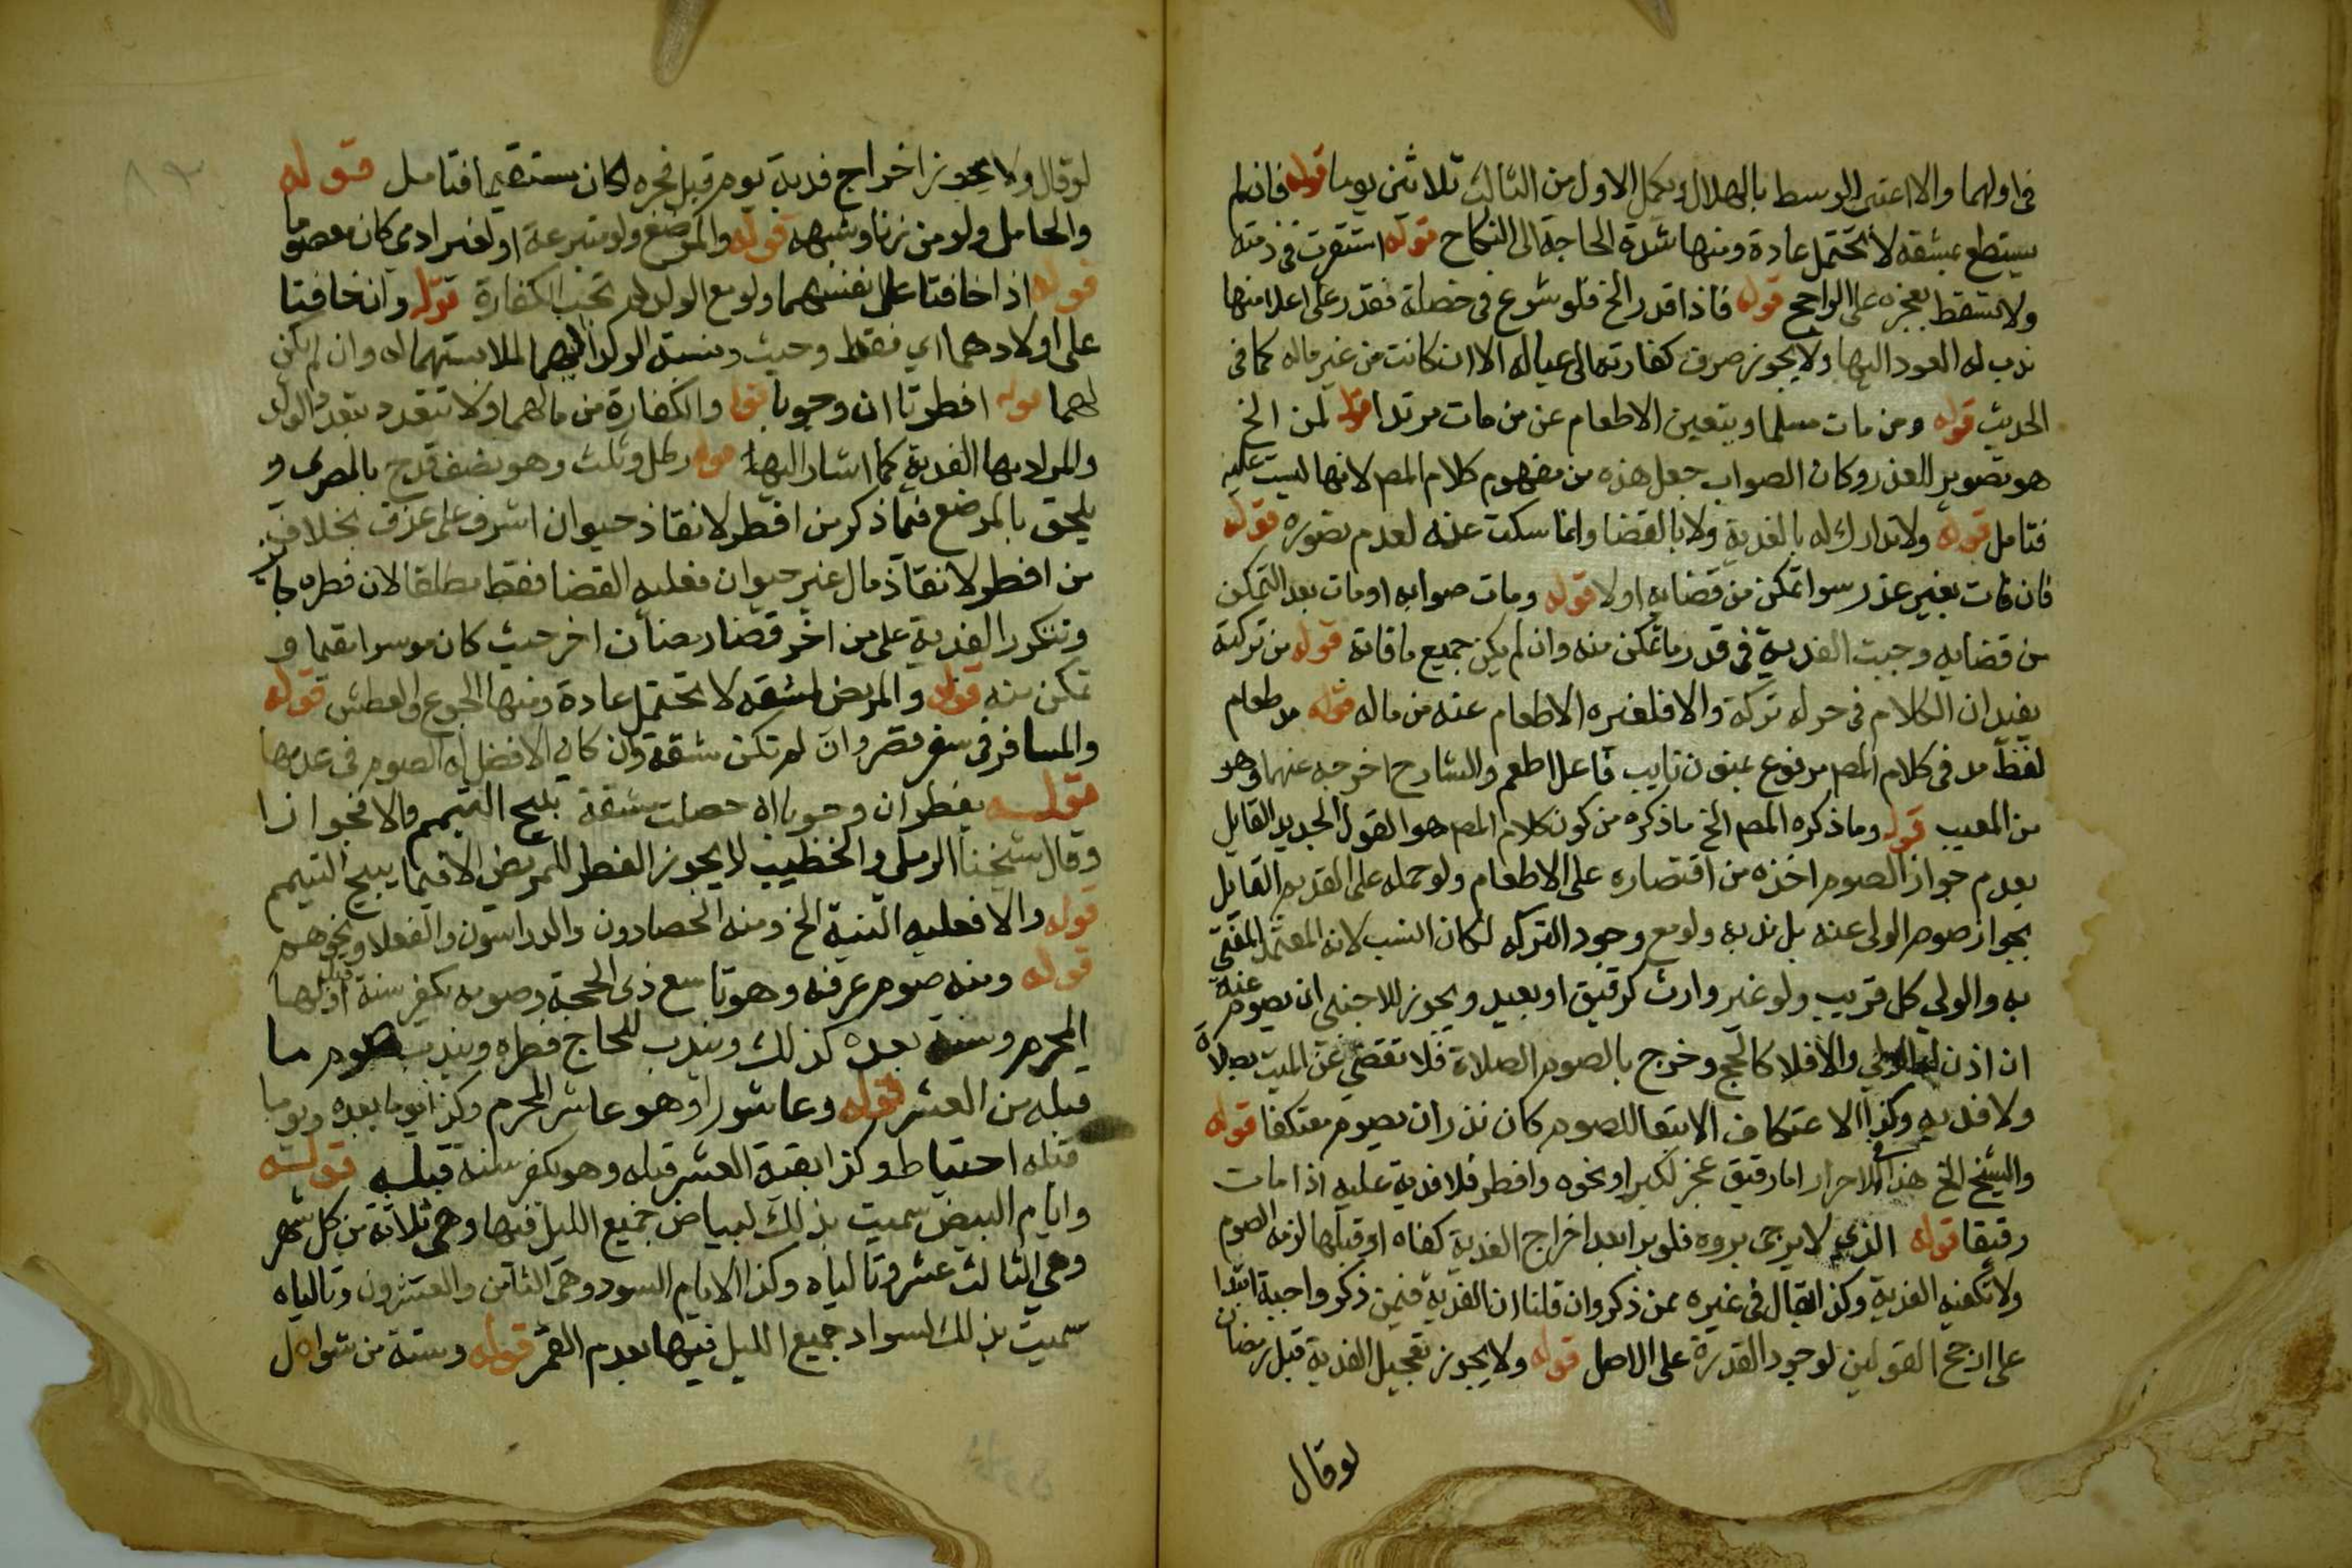 في اولهما والا اعتبر الوسط بالهلال ويكمل الاول من الثالث ثلاثين يوما قوله فان لم
يستطع بمشقه لا تحتمل عادة ومنها شدة الحاجة الى النكاح قوله استقرت في ذمته
ولا تسقط بعجزه على الراجح قوله فاذا قدر الخ فلو شرع في خصلة فقدر على اعلا منها
ندب له العود اليها ولا يجوز صرف كفارته الى عياله الا ان كانت من غير ماله كما في
الحديث قوله ومن مات مسلما ويتعين الاطعام عن من مات مرتدا قوله لمن الخ
هو تصوير للعذر وكان الصواب جعل هذه من مفهوم كلام المصم لانها ليست
فتامل قوله ولا تدارك له بالفدية ولا بالقضا وانما سكت عنه لعدم تصوره قوله
فان فات بغير عذر سوا تمكن من قضايه او لا قوله ومات صوابه او مات بعد التمكن
من قضايه وجبت الفدية في قدر ما تمكن منه وان لم يكن جميع ما فاته قوله من تركته
يفيد ان الكلام في حر له تركة والا فلغيره الاطعام عنه من ماله قوله مد طعام
لفظ مد في كلام المصم مرفوع بنون نايب فاعل اطعم والشارح اخرجه عنهما وهو
من المعيب قوله وما ذكره المصم الخ ما ذكره من كون كلام المصم هو القول الجديد القايل
بعدم جواز الصوم اخذه من اقتصاره على الاطعام ولو حمله على القديم القايل
بجواز صوم الولى عنه بل ندبه ولو مع وجود التركه لكان انسب لانه المعتمد المفتى
به والولي كل قريب ولو غير وارث كرقيق او بعيد ويجوز للاجنبي ان يصوم عنه
ان اذن له الولي والا فلا كالحج وخرج بالصوم الصلاة فلا تقضى عن الميت بصلاة
ولا فديه وكذا الاعتكاف الا تبعا للصوم كان نذر ان يصوم معتكفا قوله
والشيخ الخ هذا في الاحرار اما رقيق عجز لكبر او نحوه وافطر فلا فدية عليه اذا مات
رقيقا قوله الذي لا يرجى بروه فلو برا بعد اخراج الفدية كفاه او قبلها لزمه الصوم
ولا تكفيه الفدية وكذا يقال في غيره ممن ذكر وان قلنا ان الفدية فيمن ذكر واجبة ابتدا
على ارجح القولين لوجود القدرة على الاصل قوله ولا يجوز تعجيل الفدية قبل رمضان
لو قال
لو قال ولا يجوز اخراج فدية يوم قبل فجره لكان مستقيما فتامل قوله
والحامل ولو من زنا وشبهه قوله والمرضع ولو متبرعة او لغير ادمي كان معصوما
قوله اذا خافتا على انفسهما ولو مع الولد لم تجب الكفارة قوله وان خافتا
على اولادهما اي فقط وحيث ونسبة الولد اليهما لملابستهما له وان لم يكن
لهما قوله افطرتا ان وجوبا قوله والكفارة من مالهما ولا تتعدد بتعدد الولد
والمراد بها الفدية كما اشار اليها قوله رطل وثلث وهو نصف قدح بالمصري و
يلحق بالمرضع فيما ذكر من افطر لانقاذ حيوان اشرف على غرق بخلاف
من افطر لانقاذ مال غير حيوان فعليه القضا فقط مطلقا لان فطره
وتتكرر الفدية على من اخر قضا رمضان اخر حيث كان موسرا مقيما و
تمكن منه قوله والمريض لمشقه لا تحتمل عادة ومنها الجوع والعطش قوله
والمسافر في سفر قصر وان لم تكن مشقة وان كان الافضل له الصوم في عدمها
قوله يفطران وجوبا ان حصلت مشقة تبيح التيمم والا فجوازا
وقال شيخنا الرملى والخطيب لا يجوز الفطر للمريض الا فيما يبيح التيمم
قوله والا فعليه النية الخ ومنه الحصادون والدراسون والفعلا ونحوهم
قوله ومنه صوم عرفه وهو تاسع ذى الحجة وصومه يكفر سنة قبل اولها
المحرم وسنة بعده كذلك ويندب للحاج فطره ويندب صوم ما
قبله من العشر قوله وعاشورا وهو عاشر المحرم وكذا يوما بعده ويوما
قبله احتياط وكذا بقية العشر قبله وهو يكفر سنة قبله قوله
وايام البيض سميت بذلك لبياض جميع الليل فيها وهي ثلاثة من كل شهر
وهي الثالث عشر وتالياه وكذا الايام السود وهي الثامن والعشرون وتالياه
سميت بذلك لسواد جميع الليل فيها بعدم القمر قوله وستة من شوال